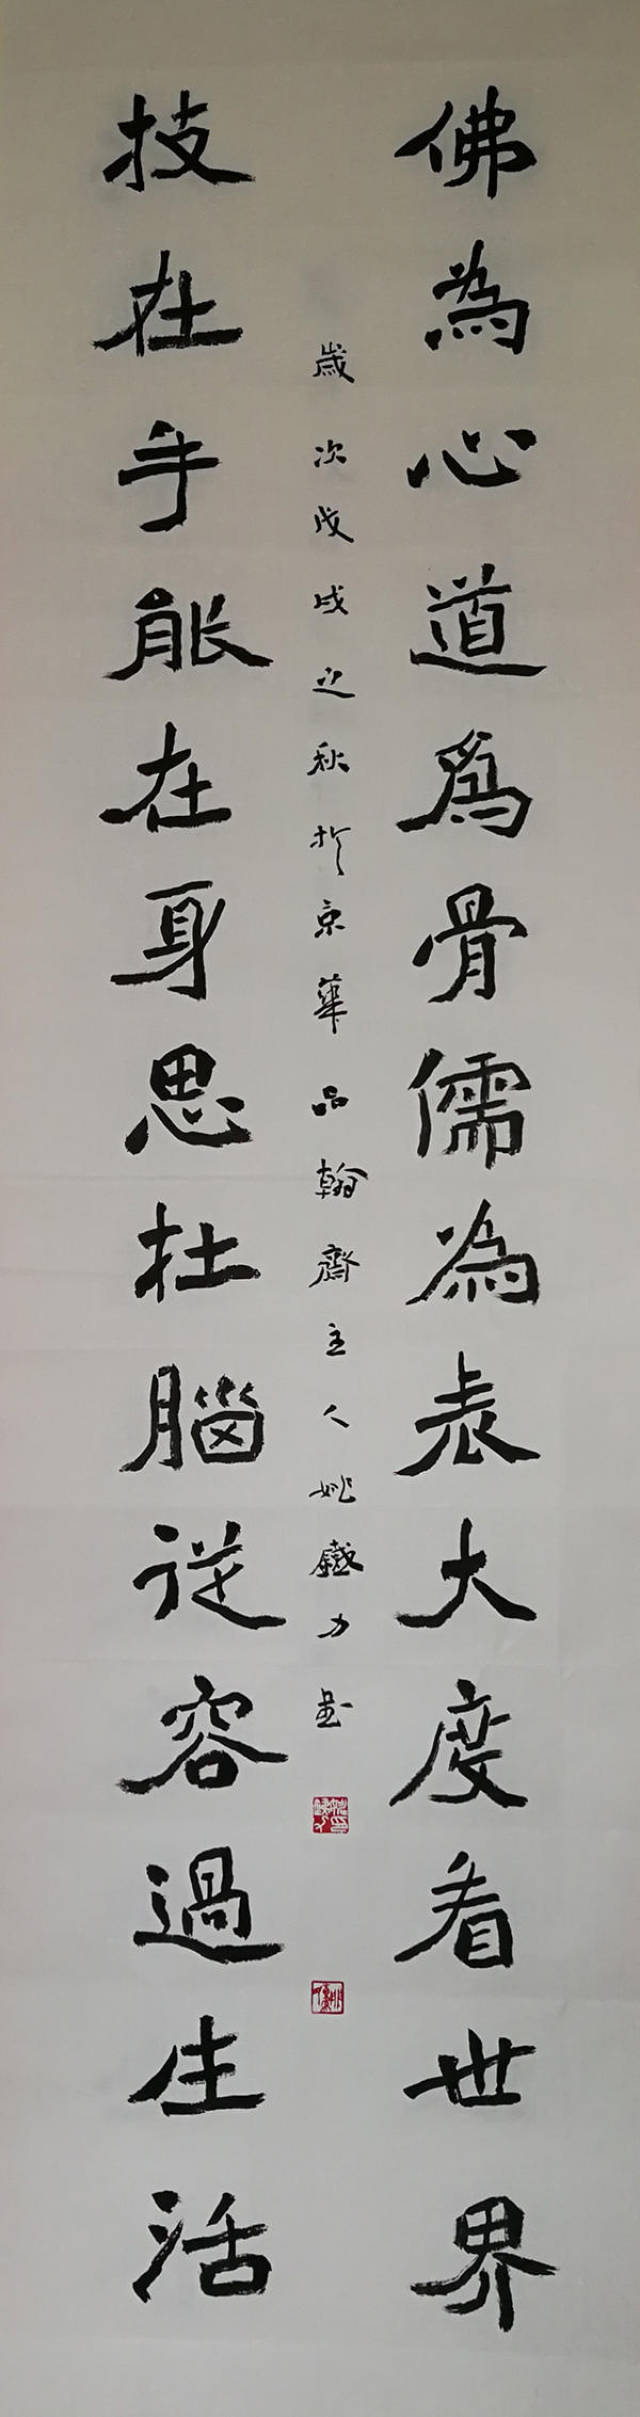 佛為心道為骨儒為表大度看世界
歲次戊戌之秋於京華品翰齋主人姚鐵力書
技在手能在身思在腦從容過生活